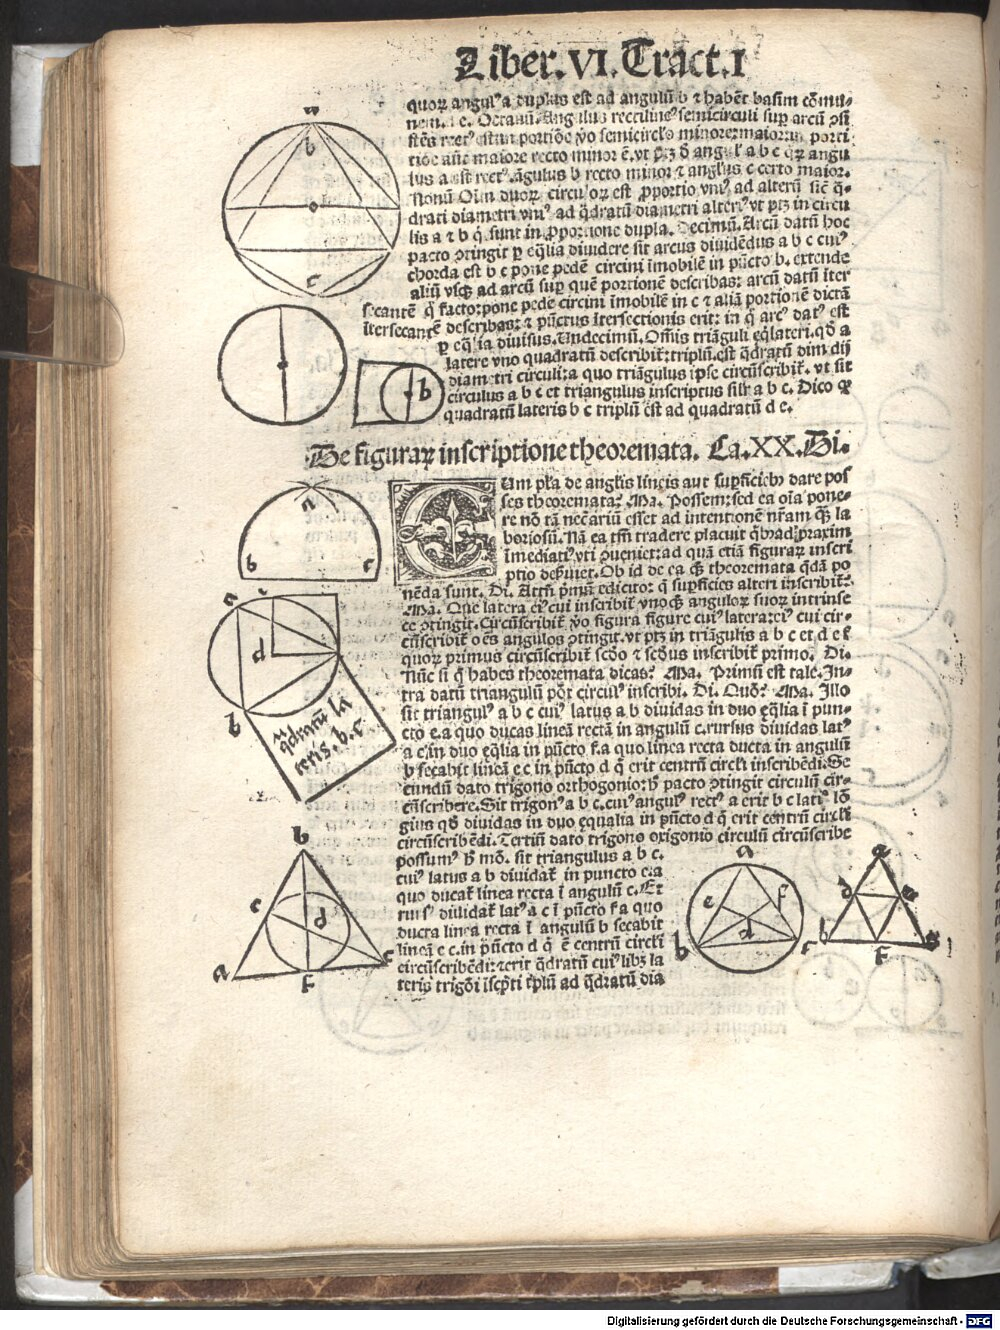 Liber.VI.Tract.I
quoꝝ angulꝰ a duplus est ad angulū b ⁊ habēt basim cōmu-
nem.i e. Octauū. Angulus rectilineꝰ semicirculi suꝑ arcū ꝯsi
stēs rectꝰ est
tiōe aūc maiore recto minor ē. vt ptꝫ ꝺ angul a b c qꝛ angu
lus a est rectꝰ. āgulus b recto minor ⁊ anglus c certo maior.
Nonū Oīm duoꝝ circuloꝝ est ꝓportio vniꝰ ad alterū sic q̄-
drati diametri vniꝰ ad q̄dratū diametri alteriꝰ vt ptꝫ in circu
lis a ⁊ b q̄ sunt in ꝓportione dupla. Decimū. Arcū datū hoc
pacto ꝯtingit ꝑ eq̄lia diuidere sit arcus diuidēdus a b c cuiꝰ
chorda est b c pone pedē circini īmobilē in pūcto b. extende
aliū vsqꝫ ad arcū suꝑ quē portionē describas: arcū datū īter
secantē q̄ facto: pone pede circini īmobilē in c ⁊ aliā portionē dictā
ītersecantē describas: ⁊ pūctus ītersectionis erit: in q̄ arcꝰ datꝰ est
ꝑ eq̄lia diuisus. Undecimū. Omīs triāguli eq̄lateri. qḋ a
latere vno quadratū describit̄: triplū est q̄dratū dimidij
diametri circuli: a quo triāgulus ipse circūscribit̄. vt sit
circulus a b c et triangulus inscriptus silr a b c. Dico ꝙ
quadratū lateris b c triplū est ad quadratū d c.
De figuraꝝ inscriptione theoremata. Ca. XX. Di.
Um pl̄a de anglis lineis aut suꝑficieb⁹ dare pos
ses theoremata? Ma. Possem: sed ea oīa pone-
re nō tā necāriū esset ad intentionē nr̄am qꝫ la
boriosū. Nā ea tm̄ tradere placuit q̄b⁹ ad praxim
īmediatiꝰ vti ꝯueniet: ad quā etiā figuraꝝ inscri
ptio deseruiet. Ob id de ea qꝫ theoremata q̄dā po
nēda sunt. Di. Attn̄ pmū edicito: q̄ suꝑficies alteri inscribit̄?
Ma. Que latera eiꝰ cui inscribit̄ vnoqꝫ anguloꝝ suoꝝ intrinse
ce ꝯtingit. Circūscribit̄ ꝟo figura figure cuiꝰ latera: eiꝰ cui cir-
cūscribit̄ oēs angulos ꝯtingit. vt ptꝫ in triāgulis a b c et d e f
quoꝝ primus circūscribit̄ scḋo ⁊ scḋus inscribit̄ primo. Di.
Nūc si q̄ habes theoremata dicas? Ma. Primū est tale. In-
tra datū triangulū pōt circulꝰ inscribi. Di. Quō? Ma. Illo
sit triangulꝰ a b c cuiꝰ latus a b diuidas in duo eq̄lia ī pun-
cto e. a quo ducas lineā rectā in angulū c. rursus diuidas latꝰ
a c in duo eq̄lia in pūcto f. a quo linea recta ducta in angulū
b secabit lineā e c in pūcto d q̄ erit centrū circli inscribēdi. Se
cundū dato trigono orthogonio: hͦ pacto ꝯtingit circulū cir-
cūscribere. Sit trigonꝰ a b c. cuiꝰ angulꝰ rectꝰ a erit b c latꝰ lō
gius qḋ diuidas in duo eq̄ualia in pūcto d q̄ erit centrū circli
circūscribēdi. Tertiū dato trigono oxigonio circulū circūscribe
possumꝰ hͦ mō. sit triangulus a b c.
cuiꝰ latus a b diuidat̄ in puncto e: a
quo ducat̄ linea recta ī angulū c. Et
rursꝰ diuidat̄ latꝰ a c ī pūcto f a quo
ducta linea recta ī angulū b secabit
lineā e c. in pūcto d q̄ ē centrū circli
circūscribēdi: ⁊ erit q̄dratū cuiꝰlibꝫ la
teris trigōi īscpti tplū ad q̄dratū dia
a
b
c
b
a
b
c
a
c
d
b
q̄dratū la
teris. b. c
b
e
d
a
f
c
a
e
f
d
b
c
a
d
e
b
f
Digitalisierung gefördert durch die Deutsche Forschungsgemeinschaft - DFG